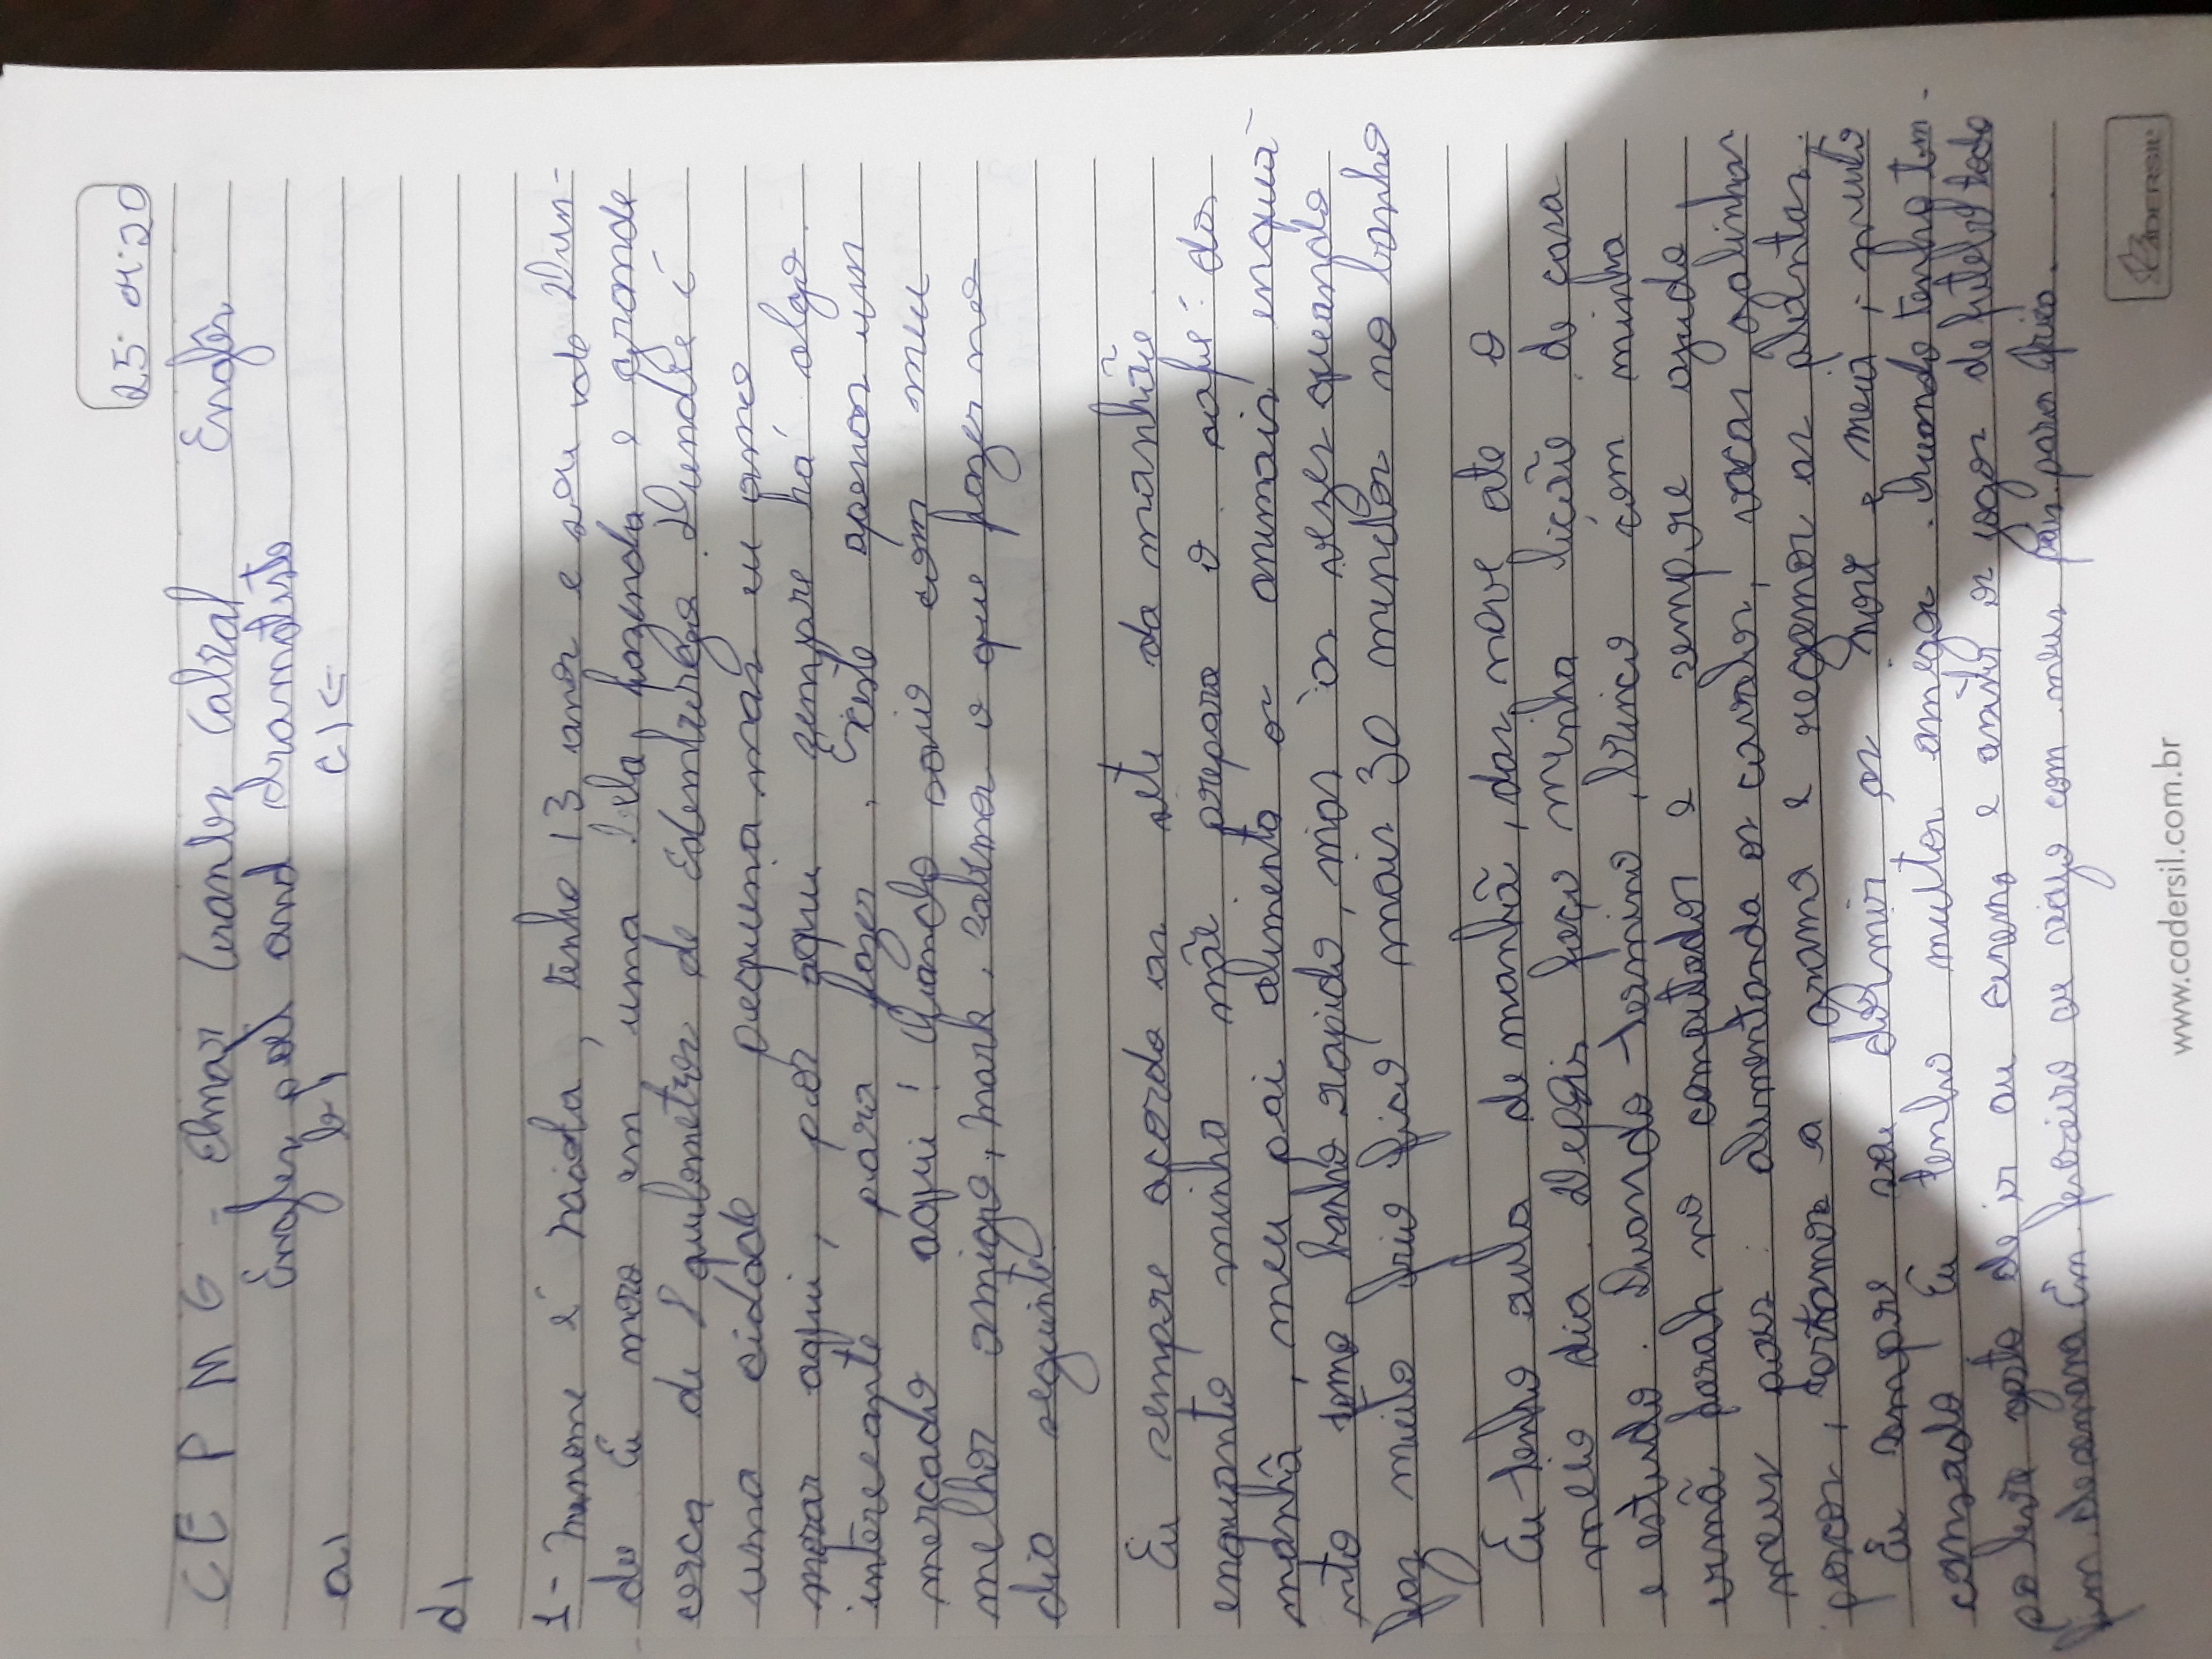 25. 04. 20
CEPMG - Elmar Arantes Cabral Englês
Engles poet and dramatiste
a) b) c) ←
d)
1- nome é, tenho 13 anos e sou de Dun-
dee Eu moro em uma bela fazenda e grande
cerca de 8 quilometros de Edemburgo. Dundee é
uma cidade pequena mas eu amo
morar aqui, por aqui sempre há algo
interecante para fazer. Existe apenas um
mercado aqui! Quando saio com meu
melhor amigo, Mark. sabemos o que fazer no
dia seguinte
Eu sempre acordo as sete da manhã e
enquanto minha mãe prepara o café da
manhã, meu pai alimenta os animais enqua-
nto tomo banho rapido, mas às vezes quando
faz muito frio fico mais 30 minutos no banho
Eu tenho aula de manhã, das nove ate o
meio dia. Depois faço minha lição de casa
e estudo. Quando termino, brinco com minha
irmã Sarah no computador e sempre ajudo
meus pais alimentando os cavalos, vacas galinhas
porcos, cortamos a grama e regamos as plantas.
Eu sempre vou dormir as nove e meia, muito
cansado. Eu tenho muitos amigos. Quando tenho tem-
po livre gosto de ir au cinema e assistir os jogos de futebol todo
fim de semana Em fevereiro eu viajo com meus pais para
www.cadersil.com.br
CADERSIL